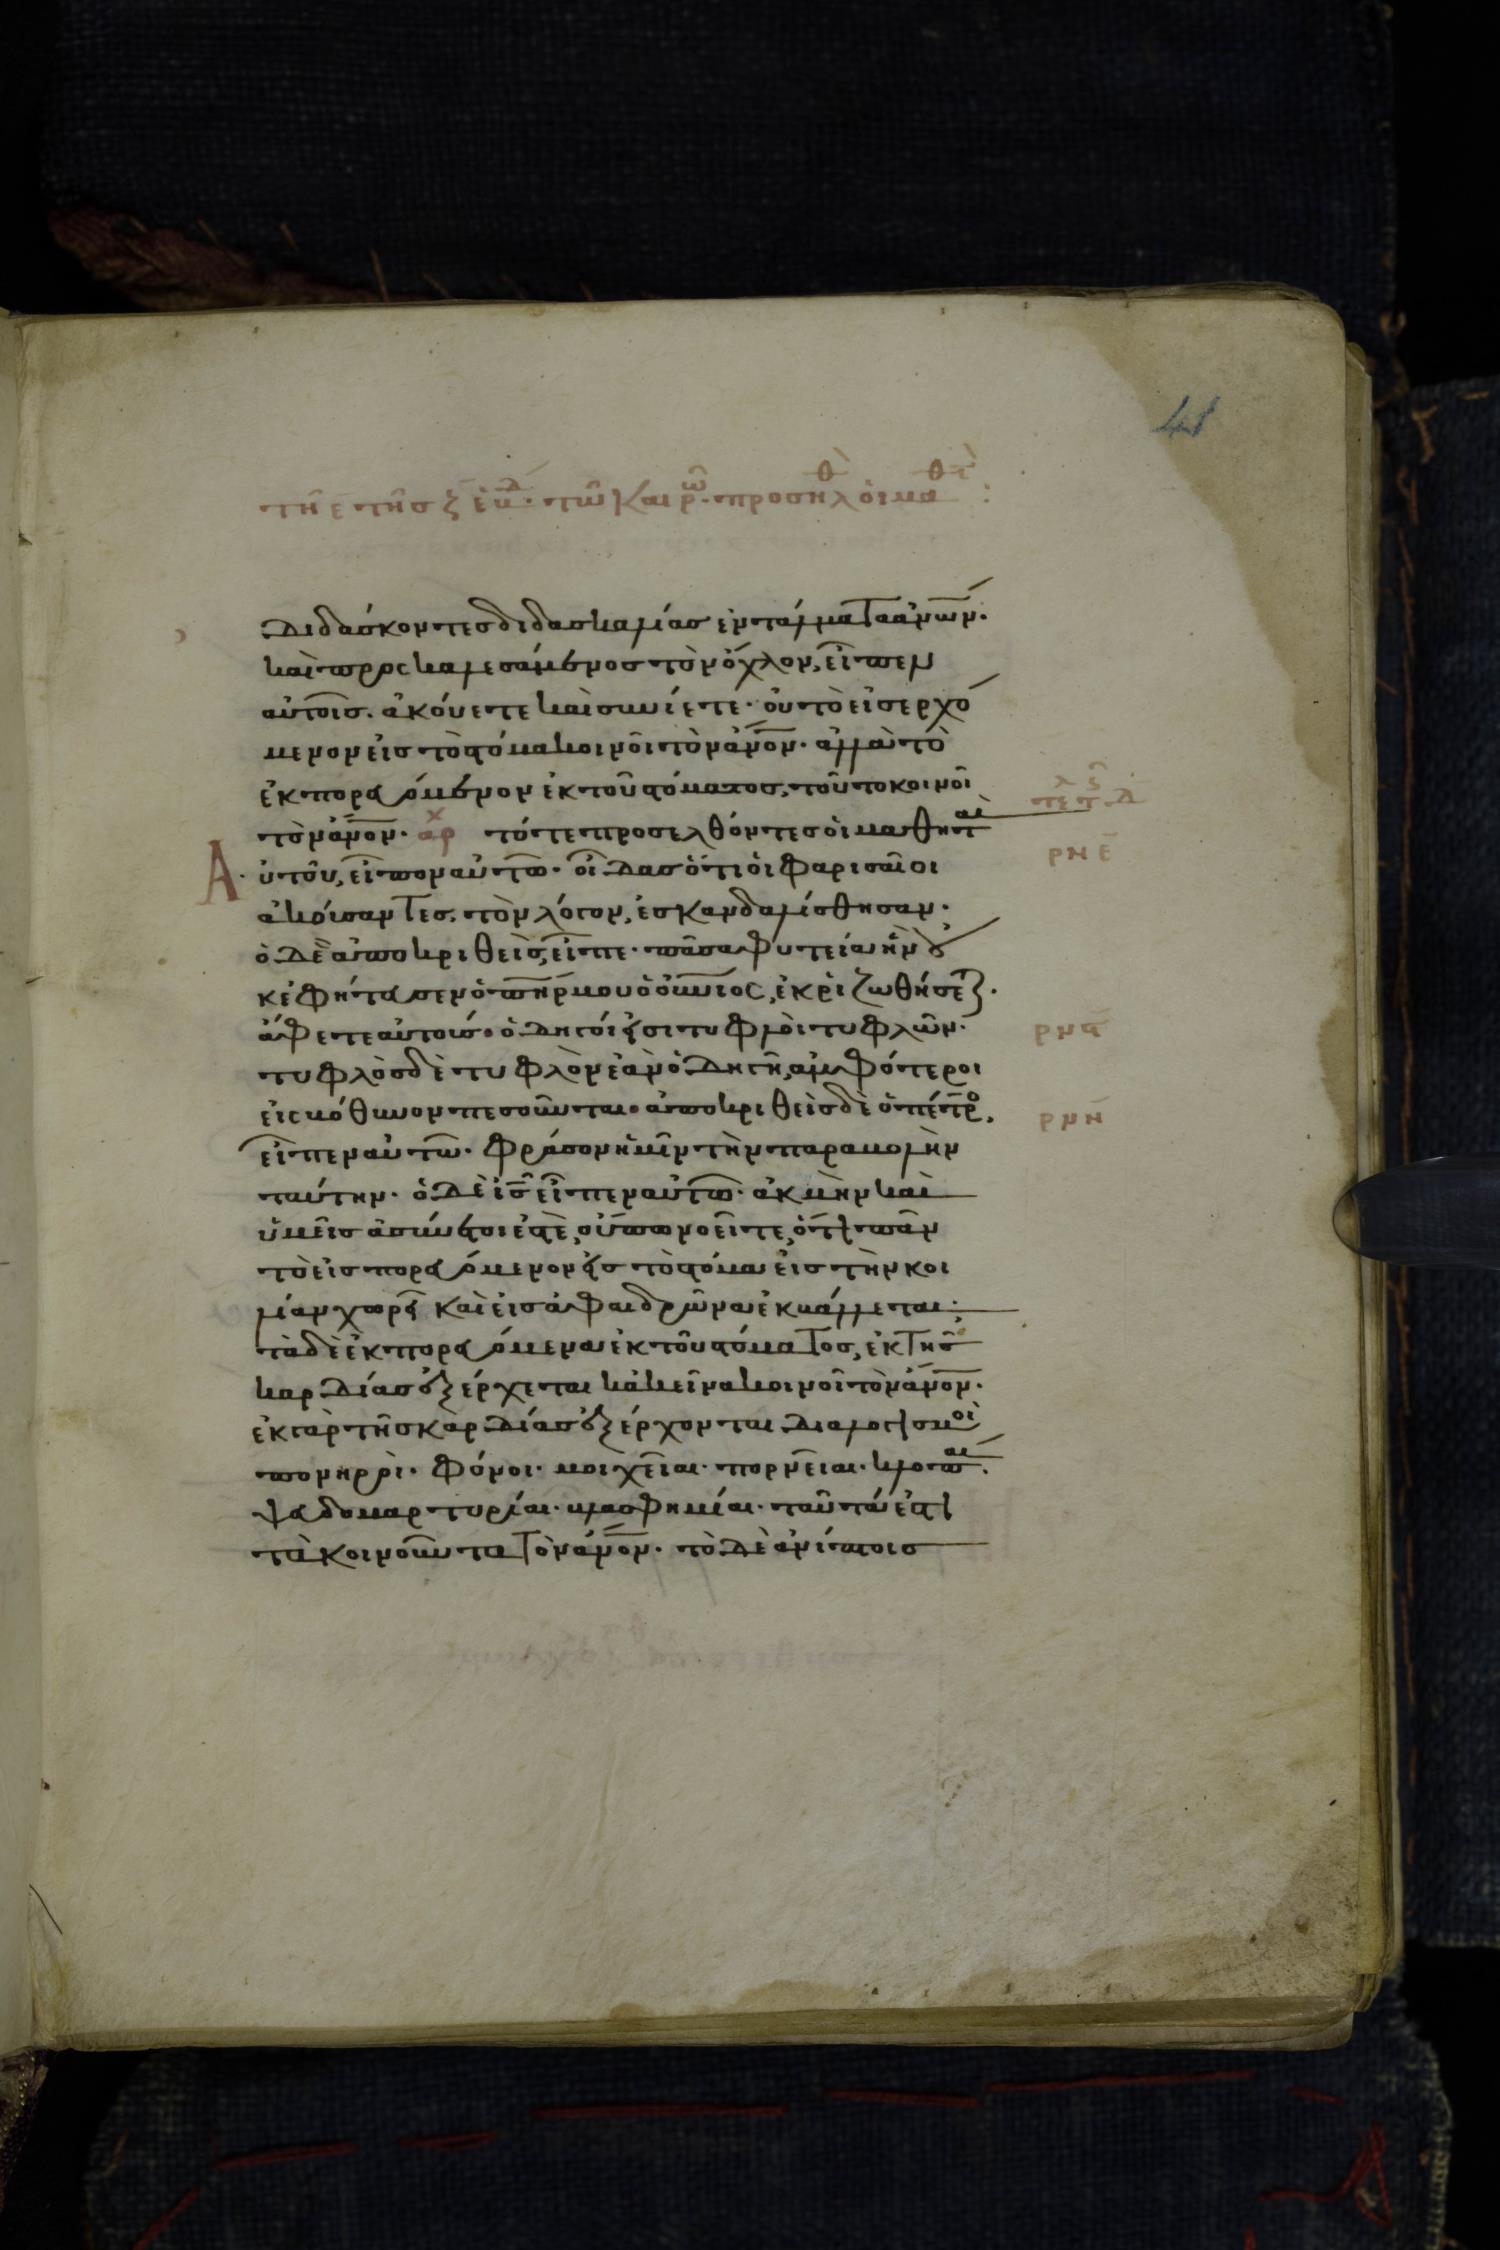 41
τῆ ε τῆς ζ ἑβδ. τῶ καιρῶ. προσῆλθ οἱ μαθτ :
διδάσκοντες διδασκαλίας ἐντάλματα ἀνων.
καὶ προσκαλεσάμενος τὸν ὄχλον, εἶπεν
αὐτοῖς. ἀκούετε καὶ συνίετε. οὐ τὸ εἰσερχό
μενον εἰς τὸ στόμα κοινοῖ τὸν ἄνον. ἀλλὰ τὸ
ἐκπορευόμενον ἐκ τοῦ στόματος, τοῦτο κοινοῖ
τὸν ἄνον. αρχ τότε προσελθόντες οἱ μαθηταὶ
Αὐτοῦ, εἶπον αὐτῶ. οἶδας ὅτι οἱ φαρισαῖοι
ἀκούσαντες, τὸν λόγον, ἐσκανδαλίσθησαν.
ὁ δὲ ἀποκριθεὶς, εἶπε. πᾶσα φυτεία ἣν οὐ
κ ἐφήτευσεν ὁ πηρ μου ὁ οὐνιος, ἐκριζωθήσεται.
ἄφετε αὐτούς. ὁδηγοί εἰσι τυφλοὶ τυφλῶν.
τυφλὸς δὲ τυφλὸν ἐὰν ὁδηγῆ, ἀμφότεροι
εἰς βόθυνον πεσοῦνται. ἀποκριθεὶς δὲ ὁ πέτρο,
εἶπεν αὐτῶ. φράσον ἡμῖν τὴν παραβολὴν
ταύτην. ὁ δὲ ις εἶπεν αὐτῶ. ἀκμὴν καὶ
ὑμεῖς ἀσύνετοι ἐστὲ, οὔπω νοεῖτε, ὅτι πᾶν
τὸ εἰσπορευόμενον εἰς τὸ στόμα εἰς τὴν κοι
λίαν χωρεῖ καὶ εἰς ἀφαιδρῶνα ἐκβάλλεται;
τὰ δὲ ἐκπορευόμενα ἐκ τοῦ στόματος, ἐκ τῆς
καρδίας ἐξέρχεται κἀκεῖνα κοινοῖ τὸν ἄνον.
ἐκ γὰρ τῆς καρδίας ἐξέρχονται διαλογισμοὶ
πονηροὶ. φόνοι. μοιχεῖαι. πορνεῖαι. κλοπαὶ.
ψευδομαρτυρίαι. βλασφημίαι. ταῦτά ἐστι
τὰ κοινοῦντα τὸν ἄνον. τὸ δὲ ἀνίπτοις
ρνε
ρνϛ
ρνη